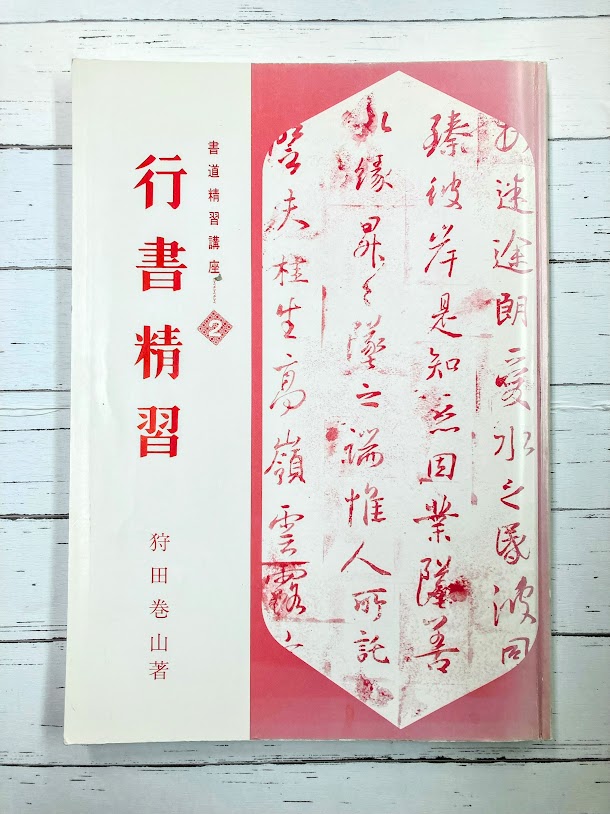 書道精習講座 2
行書精習
狩田巻山著
迷途朗愛水之昏波同
臻彼岸是知惡因業墜善
以緣昇々墜之端惟人所託
譬夫桂生高嶺雲露